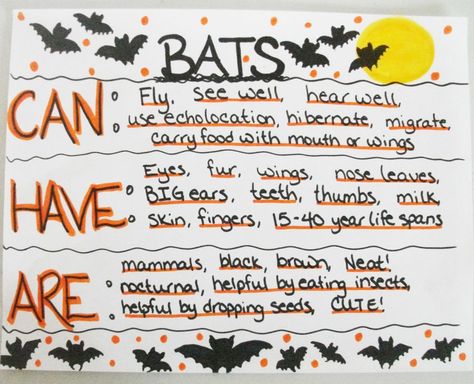 BATS
CAN : Fly, see well, hear well,
use echolocation, hibernate, migrate,
carry food with mouth or wings
HAVE : Eyes, fur, wings, nose leaves,
BIG ears, teeth, thumbs, milk,
skin, fingers, 15-40 year life spans
ARE : mammals, black, brown, Neat!
nocturnal, helpful by eating insects,
helpful by dropping seeds, CUTE!